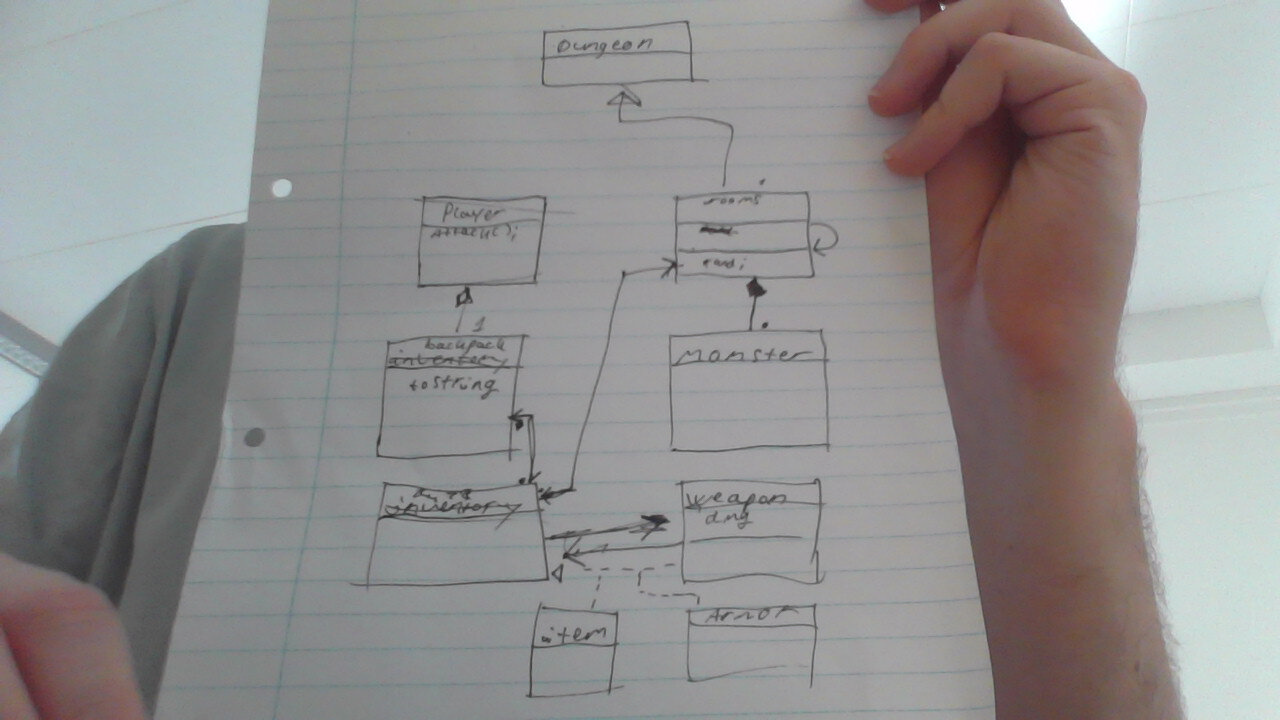 Dungeon
rooms
Player
Attack();
1
backpack
inventory
toString
Monster
inventory
weapon
dmg
item
Armor